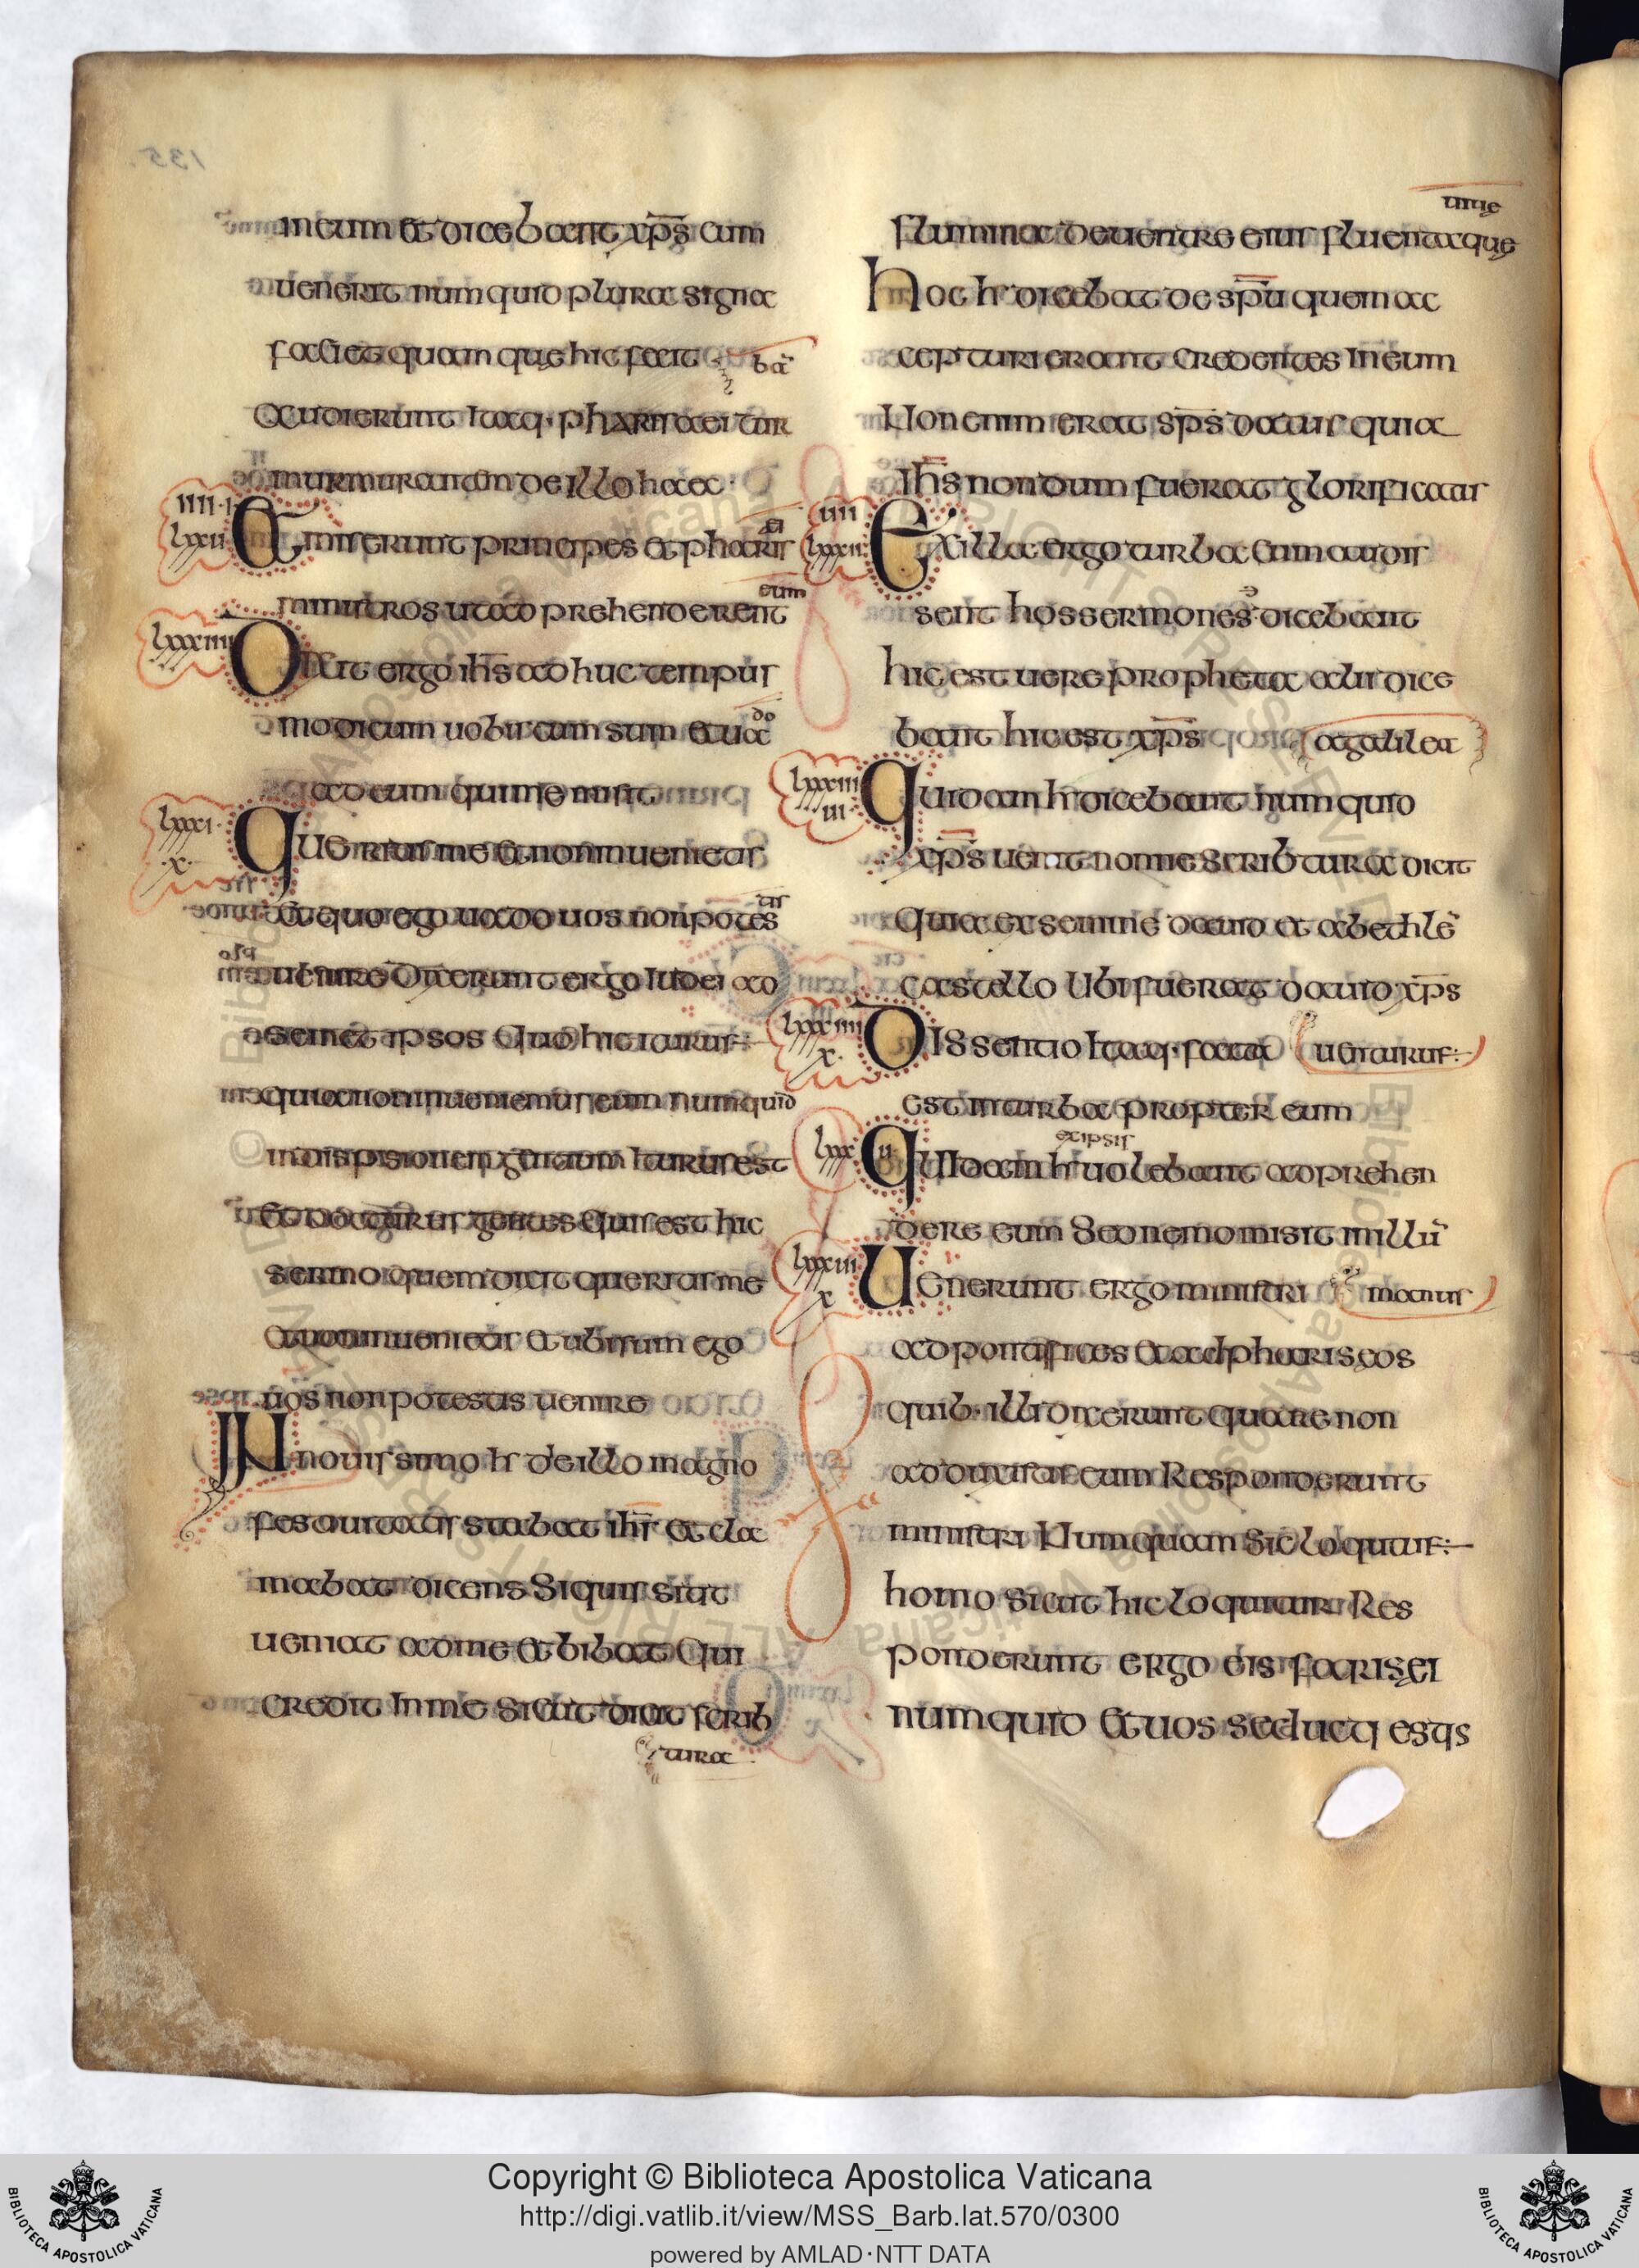 in eum et dicebant xp̄s cum
uenerit num quid plura signa
faciet quam quę hic fecit
ba
Audierunt itaq· pharisaei tur
murmurantem de illo haec·
IIII·I
lxxii
Et miserunt principes et pharis
ei
ministros ut adprehenderent
eum
lxxxiiii
Dixit ergo ih̄s adhuc tempus
modicum uobiscum sum et ua
do
ad eum qui me misit
lxxxi·
x·
Queritis me et non inuenietis
Et quo ego uado uos non potes
tis
uenire Dixerunt ergo iudei ad
semet ipsos Quo hic iturus:
quia non inueniemus eum numquid
in dispersionem gentium iturus est
Et docturus gentes Quis est hic
sermo quem dicit queritis me
et non inuenietis et ubi sum ego
uos non potestis uenire
IN nouissimo h̄ die illo magno
festiuitatis stabat ih̄s et cla
mabat dicens Si quis sitit
ueniat ad me et bibat Qui
credit in me sicut dicit scrib
tura
flumina de uentre eius fluent aque
uiuę
hoc h̄ dicebat de sp̄u quem ac
cepturi erant credentes in eum
Non enim erat sp̄s datus quia
Ih̄s nondum fuerat glorificatus
IIII
lxxxii
Ex illa ergo turba cum audis
sent hos sermones dicebant
hic est uere propheta alii dice
bant hic est xp̄s
a galilea
lxxxiii
III·
Quidam h̄ dicebant numquid
xp̄s uenit nonne scribtura dicit
Quia ex semine dauid et a bethlē
castello Ubi fuerat dauid xp̄s
lxxxiiii
x·
Dissentio itaq· facta
uenturus:
est in turba propter eum
ex ipsis
lxx
Quidam h̄ uolebant adprehen
dere eum Sed nemo misit in illū
manus
lxxxiii
x
Uenerunt ergo ministri
ad pontifices et ad pharisęos
quib· illi dixerunt Quare non
adduxistis eum Responderunt
ministri Numquam sic loqutus:
homo sicut hic loquitur Res
ponderunt ergo eis farisęi
numquid et uos seducti estis
Copyright © Biblioteca Apostolica Vaticana
http://digi.vatlib.it/view/MSS_Barb.lat.570/0300
powered by AMLAD·NTT DATA
BIBLIOTECA APOSTOLICA VATICANA
BIBLIOTECA APOSTOLICA VATICANA